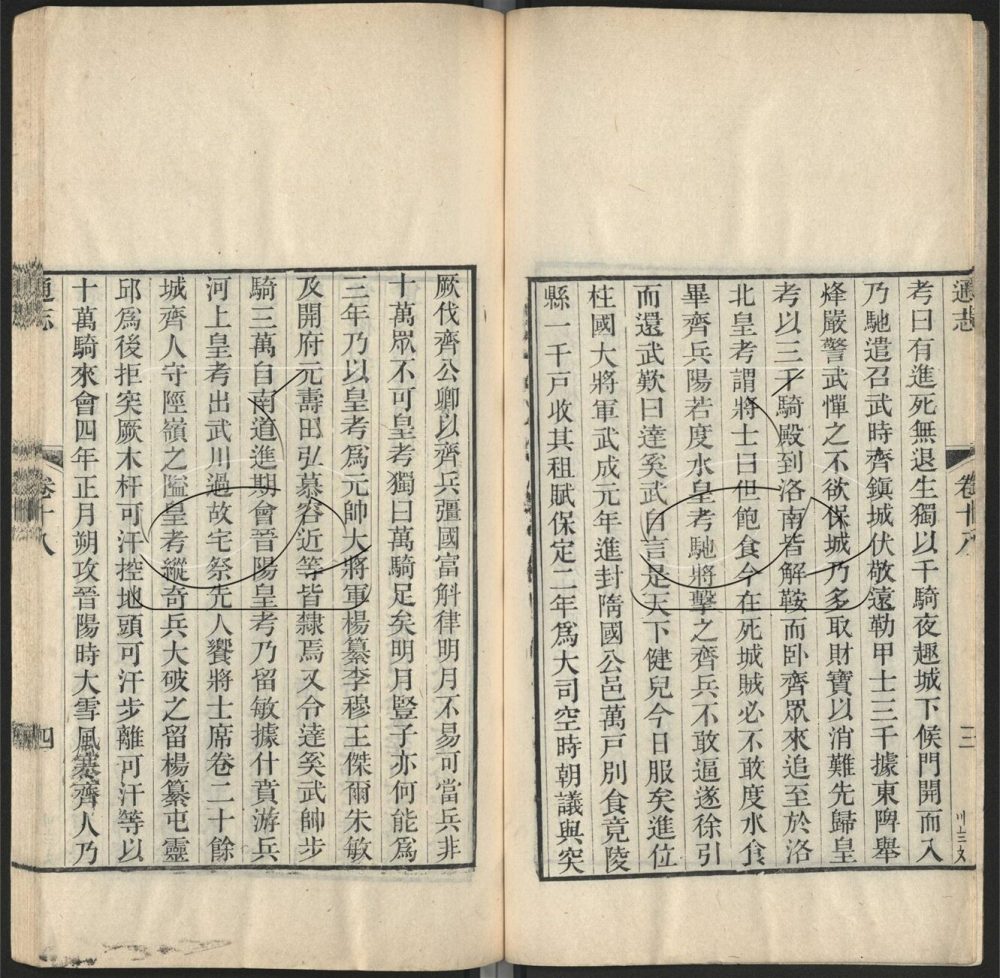 通志 卷十八 三
考曰有進死無退生獨以千騎夜趣城下候門開而入
乃馳遣召武時齊鎮城伏敬遠勒甲士三千據東陴舉
烽嚴警武憚之不欲保城乃多取財寶以消難先歸皇
考以三千騎殿到洛南皆解鞍而卧齊眾來追至於洛
北皇考謂將士曰但飽食今在死城賊必不敢度水食
畢齊兵陽若度水皇考馳將擊之齊兵不敢逼遂徐引
而還武歎曰達奚武自言是天下健兒今日服矣進位
柱國大將軍武成元年進封隋國公邑萬戸別食竟陵
縣一千戸收其租賦保定二年爲大司空時朝議與突
厥伐齊公卿以齊兵彊國富斛律明月不易可當兵非
十萬眾不可皇考獨曰萬騎足矣明月豎子亦何能爲
三年乃以皇考爲元帥大將軍楊纂李穆王傑爾朱敏
及開府元壽田弘慕容近等皆隸焉又令達奚武帥步
騎三萬自南道進期會晉陽皇考乃留敏據什賁游兵
河上皇考出武川過故宅祭先人饗將士席卷二十餘
城齊人守陘嶺之隘皇考縱奇兵大破之留楊纂屯靈
邱爲後拒突厥木杆可汗控地頭可汗步離可汗等以
十萬騎來會四年正月朔攻晉陽時大雪風寒齊人乃
通志 卷十八 四